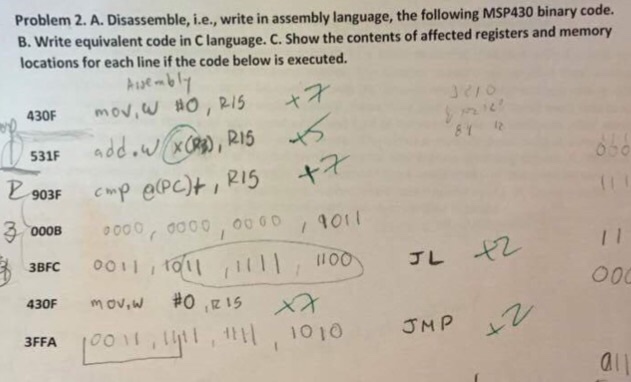 Problem 2. A. Disassemble, i.e., write in assembly language, the following MSP430 binary code.
B. Write equivalent code in C language. C. Show the contents of affected registers and memory
locations for each line if the code below is executed.
Assembly
430F mov.w #0, R15 +7
531F add.w x(R3), R15 +5
903F cmp @(PC)+, R15 +7
3 000B 0000, 0000, 0000, 1011
3BFC 0011, 1011, 1111, 1100 JL +2
430F mov.w #0, R15 +7
3FFA 0011, 1111, 1111, 1010 JMP +2
all